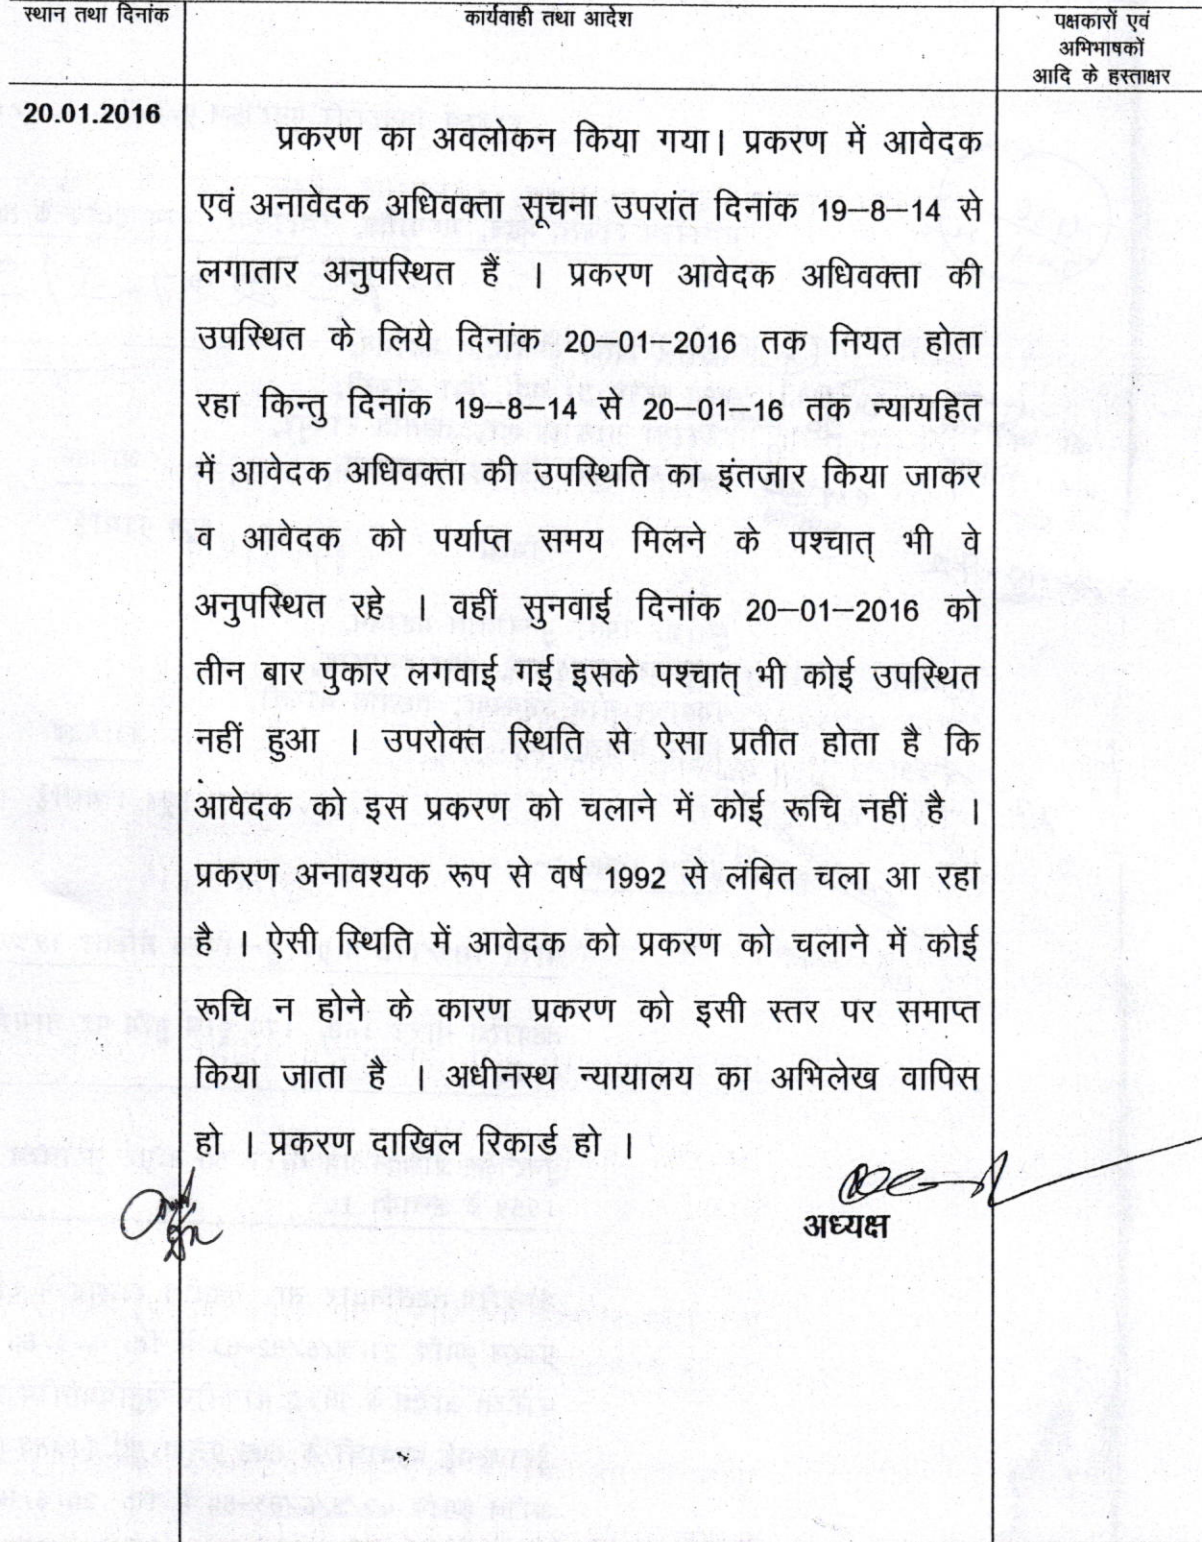 स्थान तथा दिनांक
कार्यवाही तथा आदेश
पक्षकारों एवं
अभिभाषकों
आदि के हस्ताक्षर
20.01.2016
प्रकरण का अवलोकन किया गया। प्रकरण में आवेदक
एवं अनावेदक अधिवक्ता सूचना उपरांत दिनांक 19–8–14 से
लगातार अनुपस्थित हैं । प्रकरण आवेदक अधिवक्ता की
उपस्थित के लिये दिनांक 20–01–2016 तक नियत होता
रहा किन्तु दिनांक 19–8–14 से 20–01–16 तक न्यायहित
में आवेदक अधिवक्ता की उपस्थिति का इंतजार किया जाकर
व आवेदक को पर्याप्त समय मिलने के पश्चात् भी वे
अनुपस्थित रहे । वहीं सुनवाई दिनांक 20–01–2016 को
तीन बार पुकार लगवाई गई इसके पश्चात् भी कोई उपस्थित
नहीं हुआ । उपरोक्त स्थिति से ऐसा प्रतीत होता है कि
आवेदक को इस प्रकरण को चलाने में कोई रूचि नहीं है ।
प्रकरण अनावश्यक रूप से वर्ष 1992 से लंबित चला आ रहा
है । ऐसी स्थिति में आवेदक को प्रकरण को चलाने में कोई
रूचि न होने के कारण प्रकरण को इसी स्तर पर समाप्त
किया जाता है । अधीनस्थ न्यायालय का अभिलेख वापिस
हो । प्रकरण दाखिल रिकार्ड हो ।
अध्यक्ष